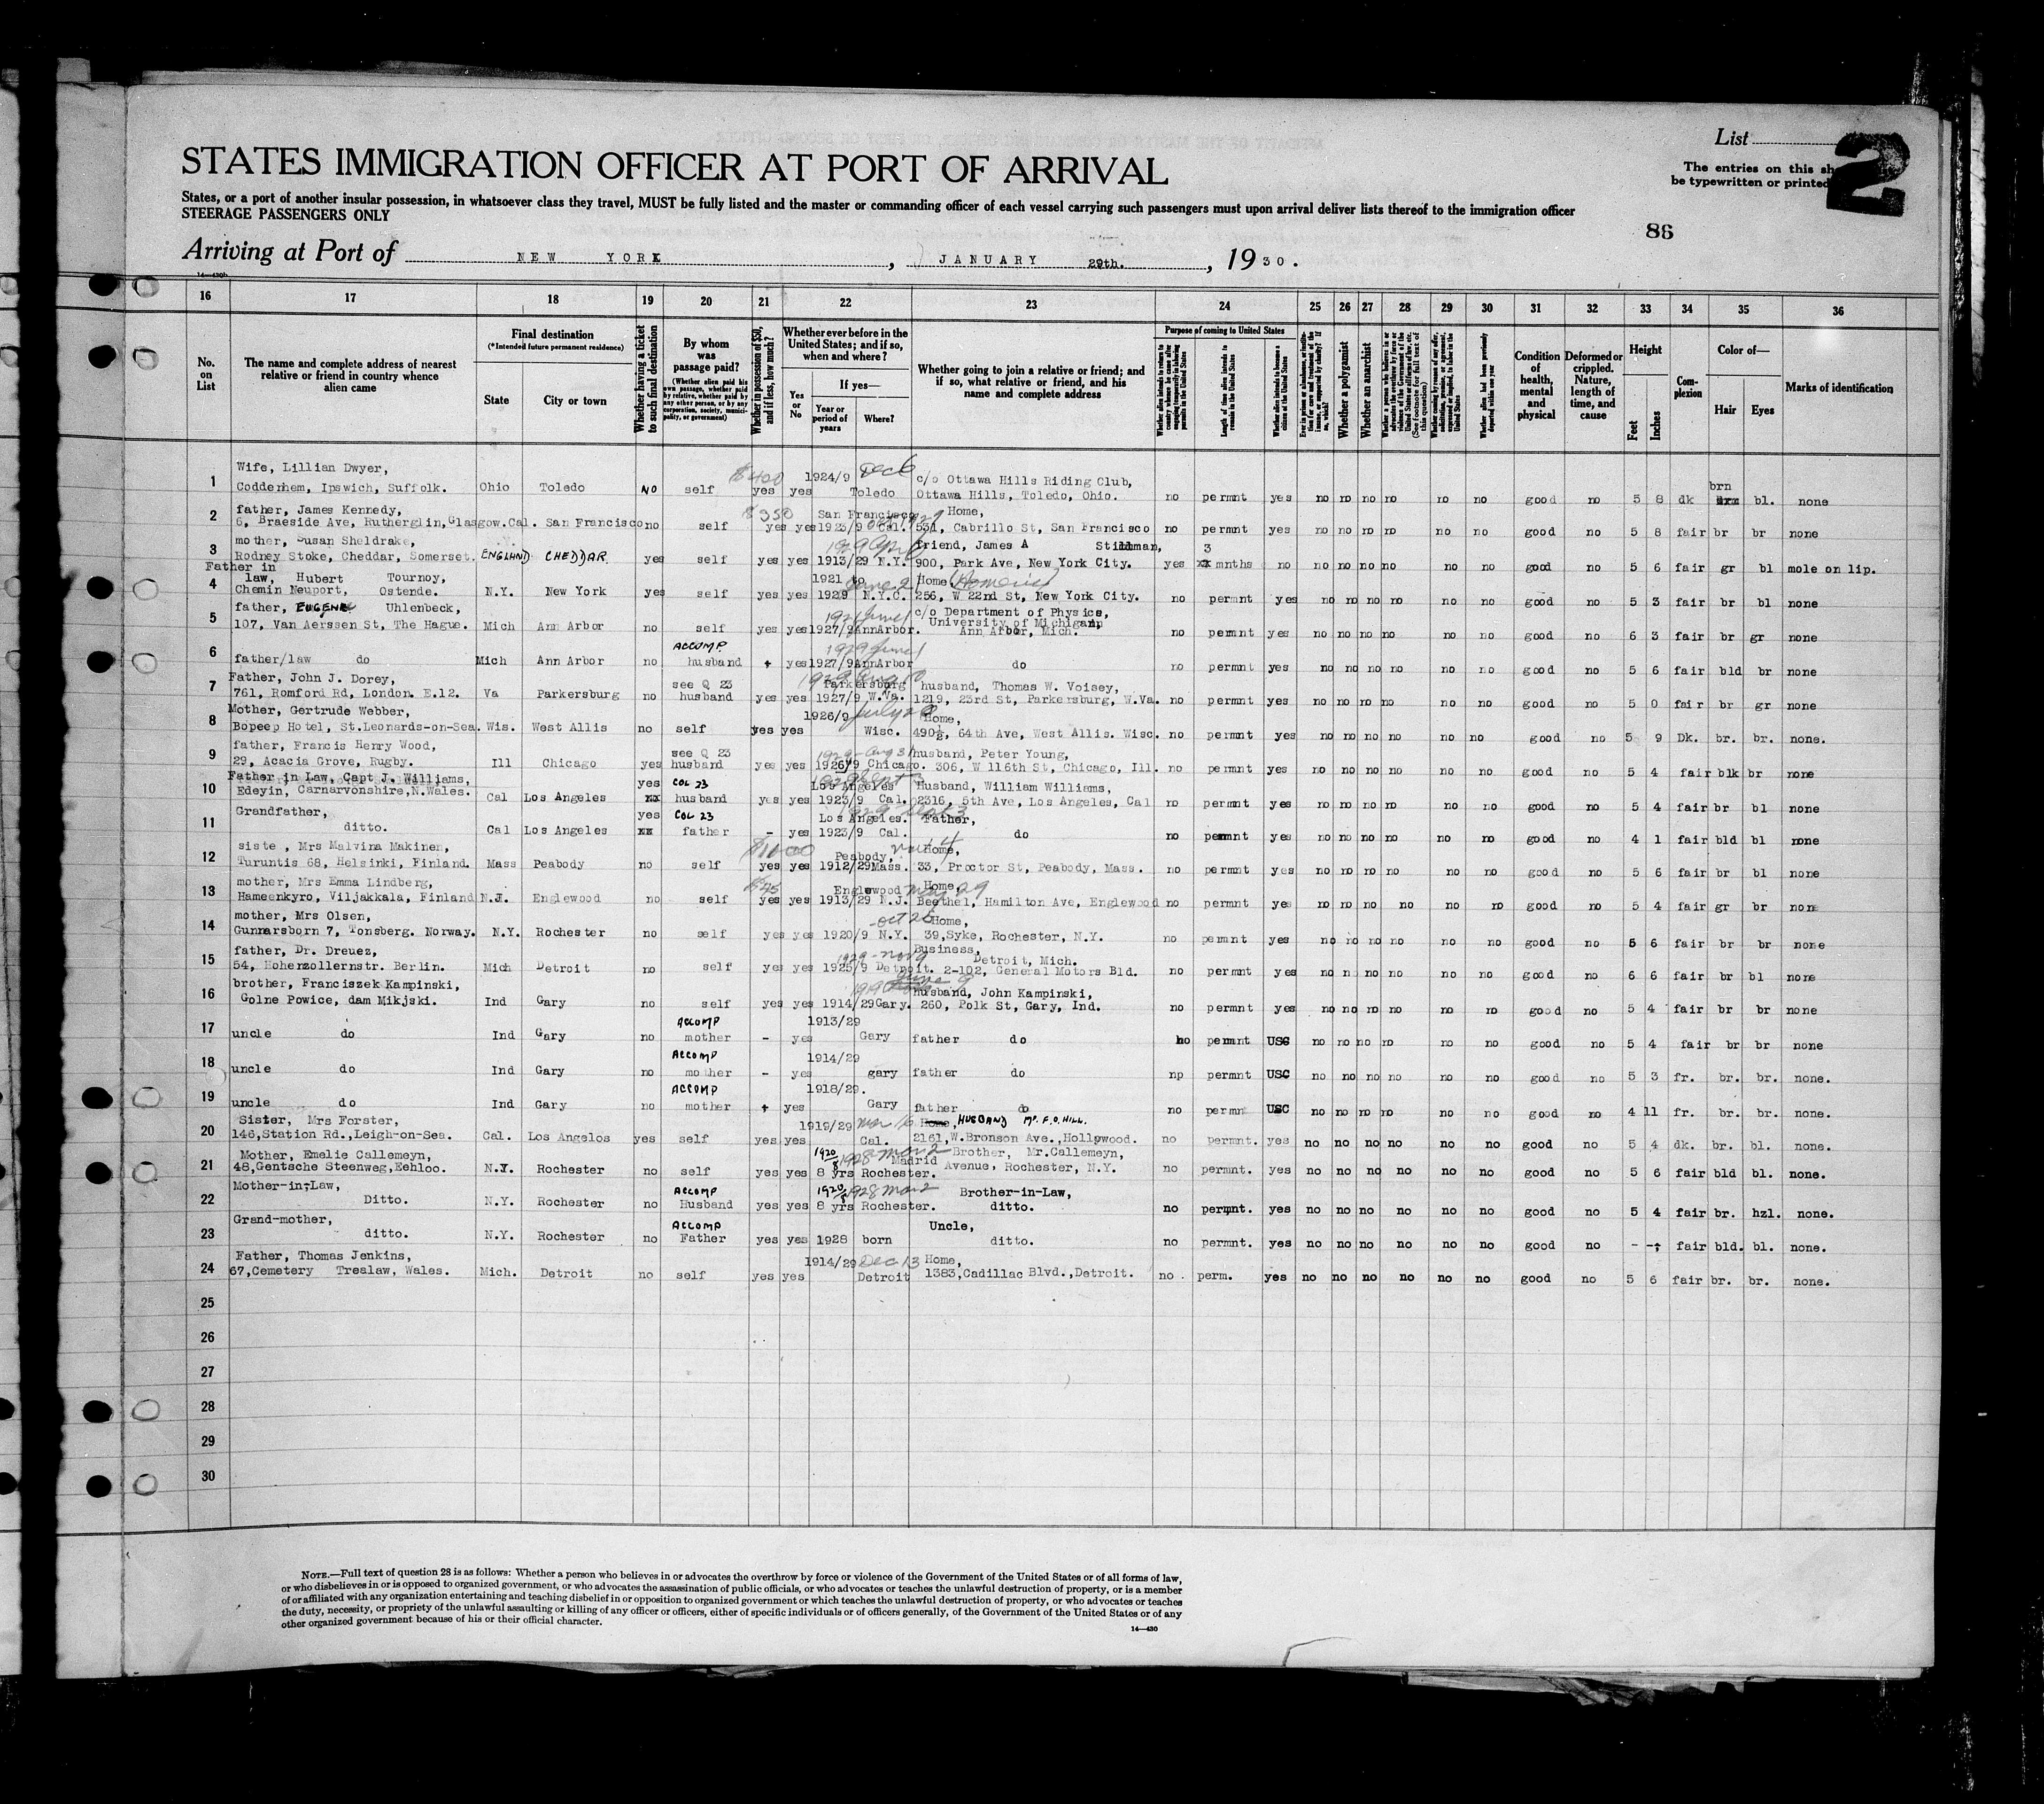 List
2
STATES IMMIGRATION OFFICER AT PORT OF ARRIVAL
The entries on this sh
be typewritten or printed
States, or a port of another insular possession, in whatsoever class they travel, MUST be fully listed and the master or commanding officer of each vessel carrying such passengers must upon arrival deliver lists thereof to the immigration officer
STEERAGE PASSENGERS ONLY
86
Arriving at Port of NEW YORK, JANUARY 29th., 1930.
14—430b
16 17 18 19 20 21 22 23 24 25 26 27 28 29 30 31 32 33 34 35 36
No. on List
The name and complete address of nearest relative or friend in country whence alien came
Final destination
(*Intended future permanent residence)
State
City or town
Whether having a ticket to such final destination
By whom was passage paid?
(Whether alien paid his own passage, whether paid by relative, whether paid by any other person, or by any corporation, society, municipality, or government)
Whether in possession of $50, and if less, how much?
Whether ever before in the United States; and if so, when and where?
Yes or No
If yes—
Year or period of years
Where?
Whether going to join a relative or friend; and if so, what relative or friend, and his name and complete address
Purpose of coming to United States
Length of time alien intends to remain in the United States
Whether alien intends to become a citizen of the United States
Whether a polygamist
Whether an anarchist
(See footnote for full text of this question)
Whether alien had been previously deported within one year
Condition of health, mental and physical
Deformed or crippled. Nature, length of time, and cause
Height
Feet
Inches
Complexion
Color of—
Hair
Eyes
Marks of identification
1 Wife, Lillian Dwyer, $400 1924/9 Dec 6 c/o Ottawa Hills Riding Club, brn
Coddenhem, Ipswich, Suffolk. Ohio Toledo NO self yes yes Toledo Ottawa Hills, Toledo, Ohio. no permnt yes no no no no no no good no 5 8 dk bl. none
2 father, James Kennedy, $350 San Francisco Home,
6, Braeside Ave, Rutherglin, Glasgow. Cal. San Francisco no self yes yes 1923/9 Cal. 531, Cabrillo St, San Francisco no permnt yes no no no no no no good no 5 8 fair br br none
3 mother, Susan Sheldrake, friend, James A Stillman, 3
Rodney Stoke, Cheddar, Somerset. ENGLAND CHEDDAR yes self yes yes 1913/29 N.Y. 900, Park Ave, New York City. yes mnths no no no no no no no good no 5 6 fair gr bl mole on lip.
4 Father in law, Hubert Tournoy, 1921 to Home
Chemin Neuport, Ostende. N.Y. New York yes self yes yes 1929 N.Y.C. 256, W 22nd St, New York City. no permnt yes no no no no no no good no 5 3 fair br bl none
5 father, EUGENE Uhlenbeck, June 1 c/o Department of Physics, University of Michigan,
107, Van Aerssen St, The Hague. Mich Ann Arbor no self yes yes 1927/9 AnnArbor. Ann Arbor, Mich. no permnt yes no no no no no no good no 6 3 fair br gr none
6 ACCOMP. 1929 June 1
father/law do Mich Ann Arbor no husband yes 1927/9 AnnArbor do no permnt yes no no no no no no good no 5 6 fair bld br none
7 Father, John J. Dorey, see Q 23 Parkersburg husband, Thomas W. Voisey,
761, Romford Rd, London. E.12. Va Parkersburg no husband yes yes 1927/9 W.Va. 1219, 23rd St, Parkersburg, W.Va. no permnt yes no no no no no no good no 5 0 fair br gr none
8 Mother, Gertrude Webber, 1926/9 Home,
Bopeep Hotel, St.Leonards-on-Sea. Wis. West Allis no self yes yes Wisc. 490½, 64th Ave, West Allis. Wisc. no permnt yes no no no no no no good no 5 9 Dk. br. br. none.
9 father, Francis Henry Wood, see Q 23 1929 Aug 31 husband, Peter Young,
29, Acacia Grove, Rugby. Ill Chicago yes husband yes yes 1926/9 Chicago. 306, W 116th St, Chicago, Ill. no permnt yes no no no no no no good no 5 4 fair blk br none
10 Father in Law, Capt J. Williams, yes COL 23 Los Angeles Husband, William Williams,
Edeyin, Carnarvonshire, N.Wales. Cal Los Angeles husband yes yes 1923/9 Cal. 2316, 5th Ave, Los Angeles, Cal no permnt yes no no no no no no good no 5 4 fair br bl none
11 Grandfather, yes COL 23 Los Angeles. Father,
ditto. Cal Los Angeles father - yes 1923/9 Cal. do no permnt yes no no no no no no good no 4 1 fair bld bl none
12 siste , Mrs Malvina Makinen, Peabody, Home,
Turuntis 68, Helsinki, Finland. Mass Peabody no self yes yes 1912/29 Mass. 33, Proctor St, Peabody, Mass. no permnt yes no no no no no no good no 5 6 fair br bl none
13 mother, Mrs Emma Lindberg, $45 Englewood Home,
Hameenkyro, Viljakkala, Finland N.J. Englewood no self yes yes 1913/29 N.J. Beethel, Hamilton Ave, Englewood no permnt yes no no no no no no good no 5 4 fair gr br none
14 mother, Mrs Olsen, Oct 26 Home,
Gunnarsborn 7, Tonsberg. Norway. N.Y. Rochester no self yes yes 1920/9 N.Y. 39,Syke, Rochester, N.Y. no permnt yes no no no no no no good no 5 6 fair br br none
15 father, Dr. Dreuez, 1929 - Nov 9 Business, Detroit, Mich.
54, Hohenzollernstr. Berlin. Mich Detroit no self yes yes 1925/9 Detroit. 2-102, General Motors Bld. no permnt yes no no no no no no good no 6 6 fair br bl none
16 brother, Franciszek Kampinski, husband, John Kampinski,
Golne Powice, dam Mikjski. Ind Gary no self yes yes 1914/29 Gary. 260, Polk St, Gary, Ind. no permnt yes no no no no no no good no 5 4 fair br br none
17 ACCOMP 1913/29
uncle do Ind Gary no mother - yes Gary father do no permnt USC no no no no no no good no 5 4 fair br br none
18 ACCOMP 1914/29
uncle do Ind Gary no mother - yes gary father do np permnt USC no no no no no no good no 5 3 fr. br. br. none.
19 ACCOMP 1918/29.
uncle do Ind Gary no mother yes Gary father do no permnt USC no no no no no no good no 4 11 fr. br. br. none.
20 Sister, Mrs Forster, 1919/29 Home, HUSBAND Mr. F.O. HILL.
146,Station Rd.,Leigh-on-Sea. Cal. Los Angelos yes self yes yes Cal. 2161,W.Bronson Ave.,Hollpwood. no permnt. yes no no no no no no good no 5 4 dk. br. bl. none.
21 Mother, Emelie Callemeyn, 1920/8 1928 Mar 2 Brother, Mr.Callemeyn,
48,Gentsche Steenweg,Eehloo. N.Y. Rochester no self yes yes 8 yrs Rochester. Madrid Avenue, Rochester, N.Y. no permnt. yes no no no no no no good no 5 6 fair bld bl. none.
22 Mother-in-Law, ACCOMP 1920/8 1928 Mar 2 Brother-in-Law,
Ditto. N.Y. Rochester no Husband yes yes 8 yrs Rochester. ditto. no permnt. yes no no no no no no good no 5 4 fair br. hzl. none.
23 Grand-mother, ACCOMP Uncle,
ditto. N.Y. Rochester no Father yes yes 1928 born ditto. no permnt. yes no no no no no no good no - - fair bld. bl. none.
24 Father, Thomas Jenkins, 1914/29 Dec 13 Home,
67,Cemetery Trealaw, Wales. Mich. Detroit no self yes yes Detroit 1383,Cadillac Blvd.,Detroit. no . perm. yes no no no no no no good no 5 6 fair br. br. none.
25
26
27
28
29
30
NOTE.—Full text of question 28 is as follows: Whether a person who believes in or advocates the overthrow by force or violence of the Government of the United States or of all forms of law,
or who disbelieves in or is opposed to organized government, or who advocates the assassination of public officials, or who advocates or teaches the unlawful destruction of property, or is a member
of or affiliated with any organization entertaining and teaching disbelief in or opposition to organized government or which teaches the unlawful destruction of property, or who advocates or teaches
the duty, necessity, or propriety of the unlawful assaulting or killing of any officer or officers, either of specific individuals or of officers generally, of the Government of the United States or of any
other organized government because of his or their official character.
14—430